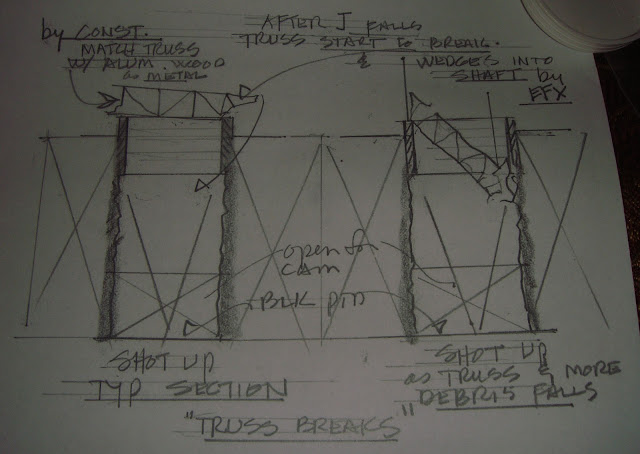 by CONST.
MATCH TRUSS
W/ ALUM. WOOD
& METAL
AFTER J FALLS
TRUSS START to BREAK.
&
WEDGES INTO
SHAFT by
EFX
open for
CAM
BLK pin
SHOT UP
TYP SECTION
SHOT UP
as TRUSS & MORE
DEBRIS FALLS
"TRUSS BREAKS"